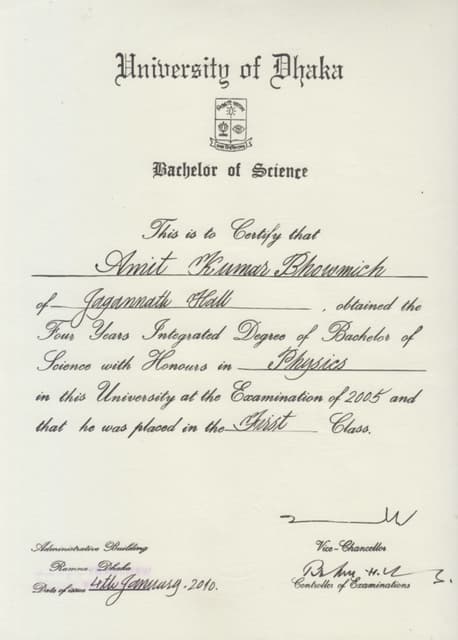 University of Dhaka
Bachelor of Science
This is to Certify that
Amit Kumar Bhowmick
of Jagannath Hall, obtained the
Four Years Integrated Degree of Bachelor of
Science with Honours in Physics
in this University at the Examination of 2005 and
that he was placed in the First Class.
Administrative Building
Ramna Dhaka
Date of issue 4th January. 2010.
Vice-Chancellor
Controller of Examinations